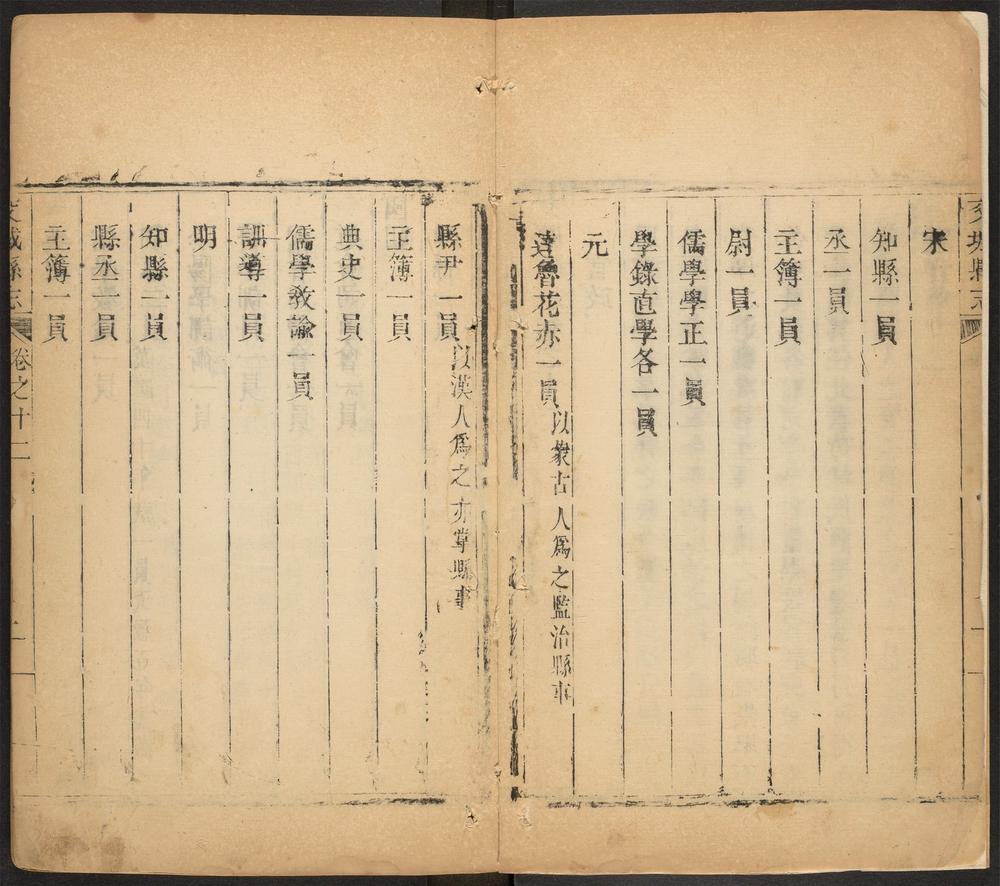 宋
知縣一員
丞一員
主簿一員
尉一員
儒學學正一員
學錄直學各一員
元
達魯花亦一員以蒙古人爲之監治縣事
縣尹一員以漢人爲之亦掌縣事
主簿一員
典史一員
儒學教諭一員
訓導一員
明
知縣一員
縣丞一員
主簿一員
城縣志 卷之十二